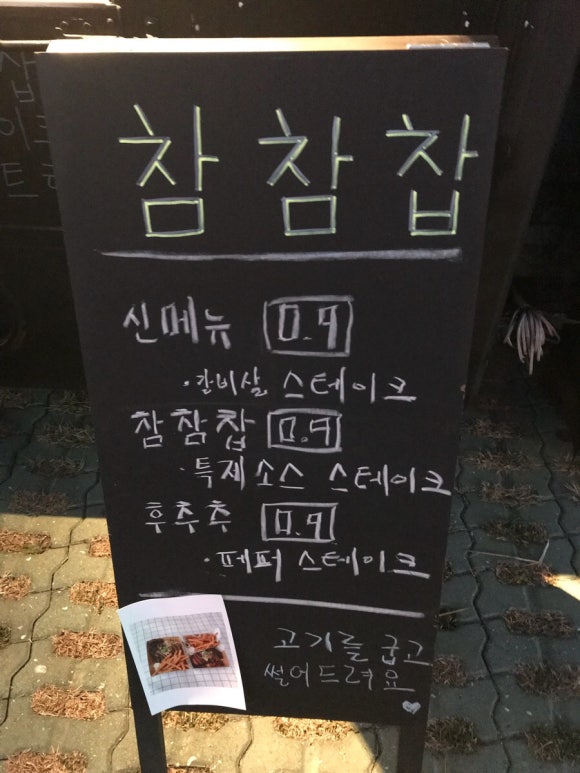 참참찹
신메뉴 0.9
·갈비살 스테이크
참참찹 0.9
·특제소스 스테이크
후추추 0.9
·페퍼 스테이크
고기를 굽고
썰어드려요